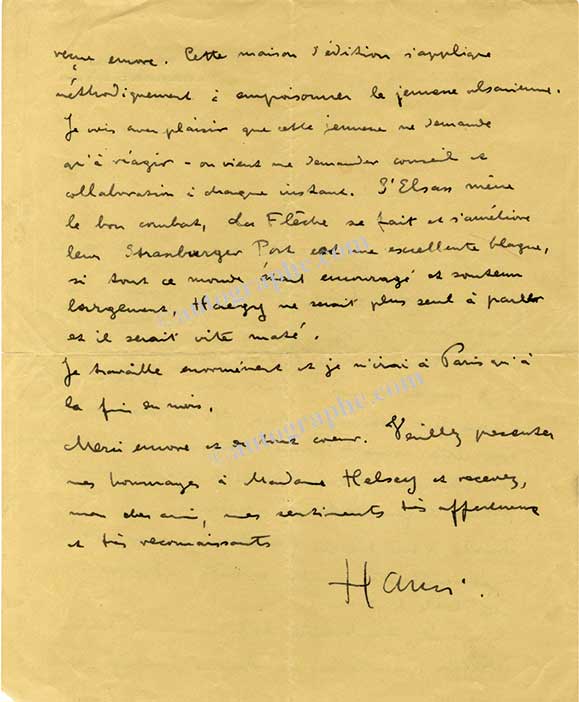 reçue encore. Cette maison d'édition s'applique
méthodiquement à empoisonner la jeunesse alsacienne.
Je vois avec plaisir que cette jeunesse ne demande
qu'à réagir - on vient me demander conseil et
collaboration à chaque instant. D'Elsass mène
le bon combat, La Flèche se fait et s'améliore
leur Strassburger Post est une excellente blague,
si tout ce monde était encouragé et soutenu
largement, Haegy ne serait plus seul à parler
et il serait vite maté.
Je travaille enormément et je n'irai à Paris qu'à
la fin du mois.
Merci encore et de tout coeur. Veuillez presenter
mes hommages à Madame Helsey et recevez,
mon cher ami, mes sentiments très affectueux
et très reconnaissants
Hansi.
©autographe.com
©autographe.com